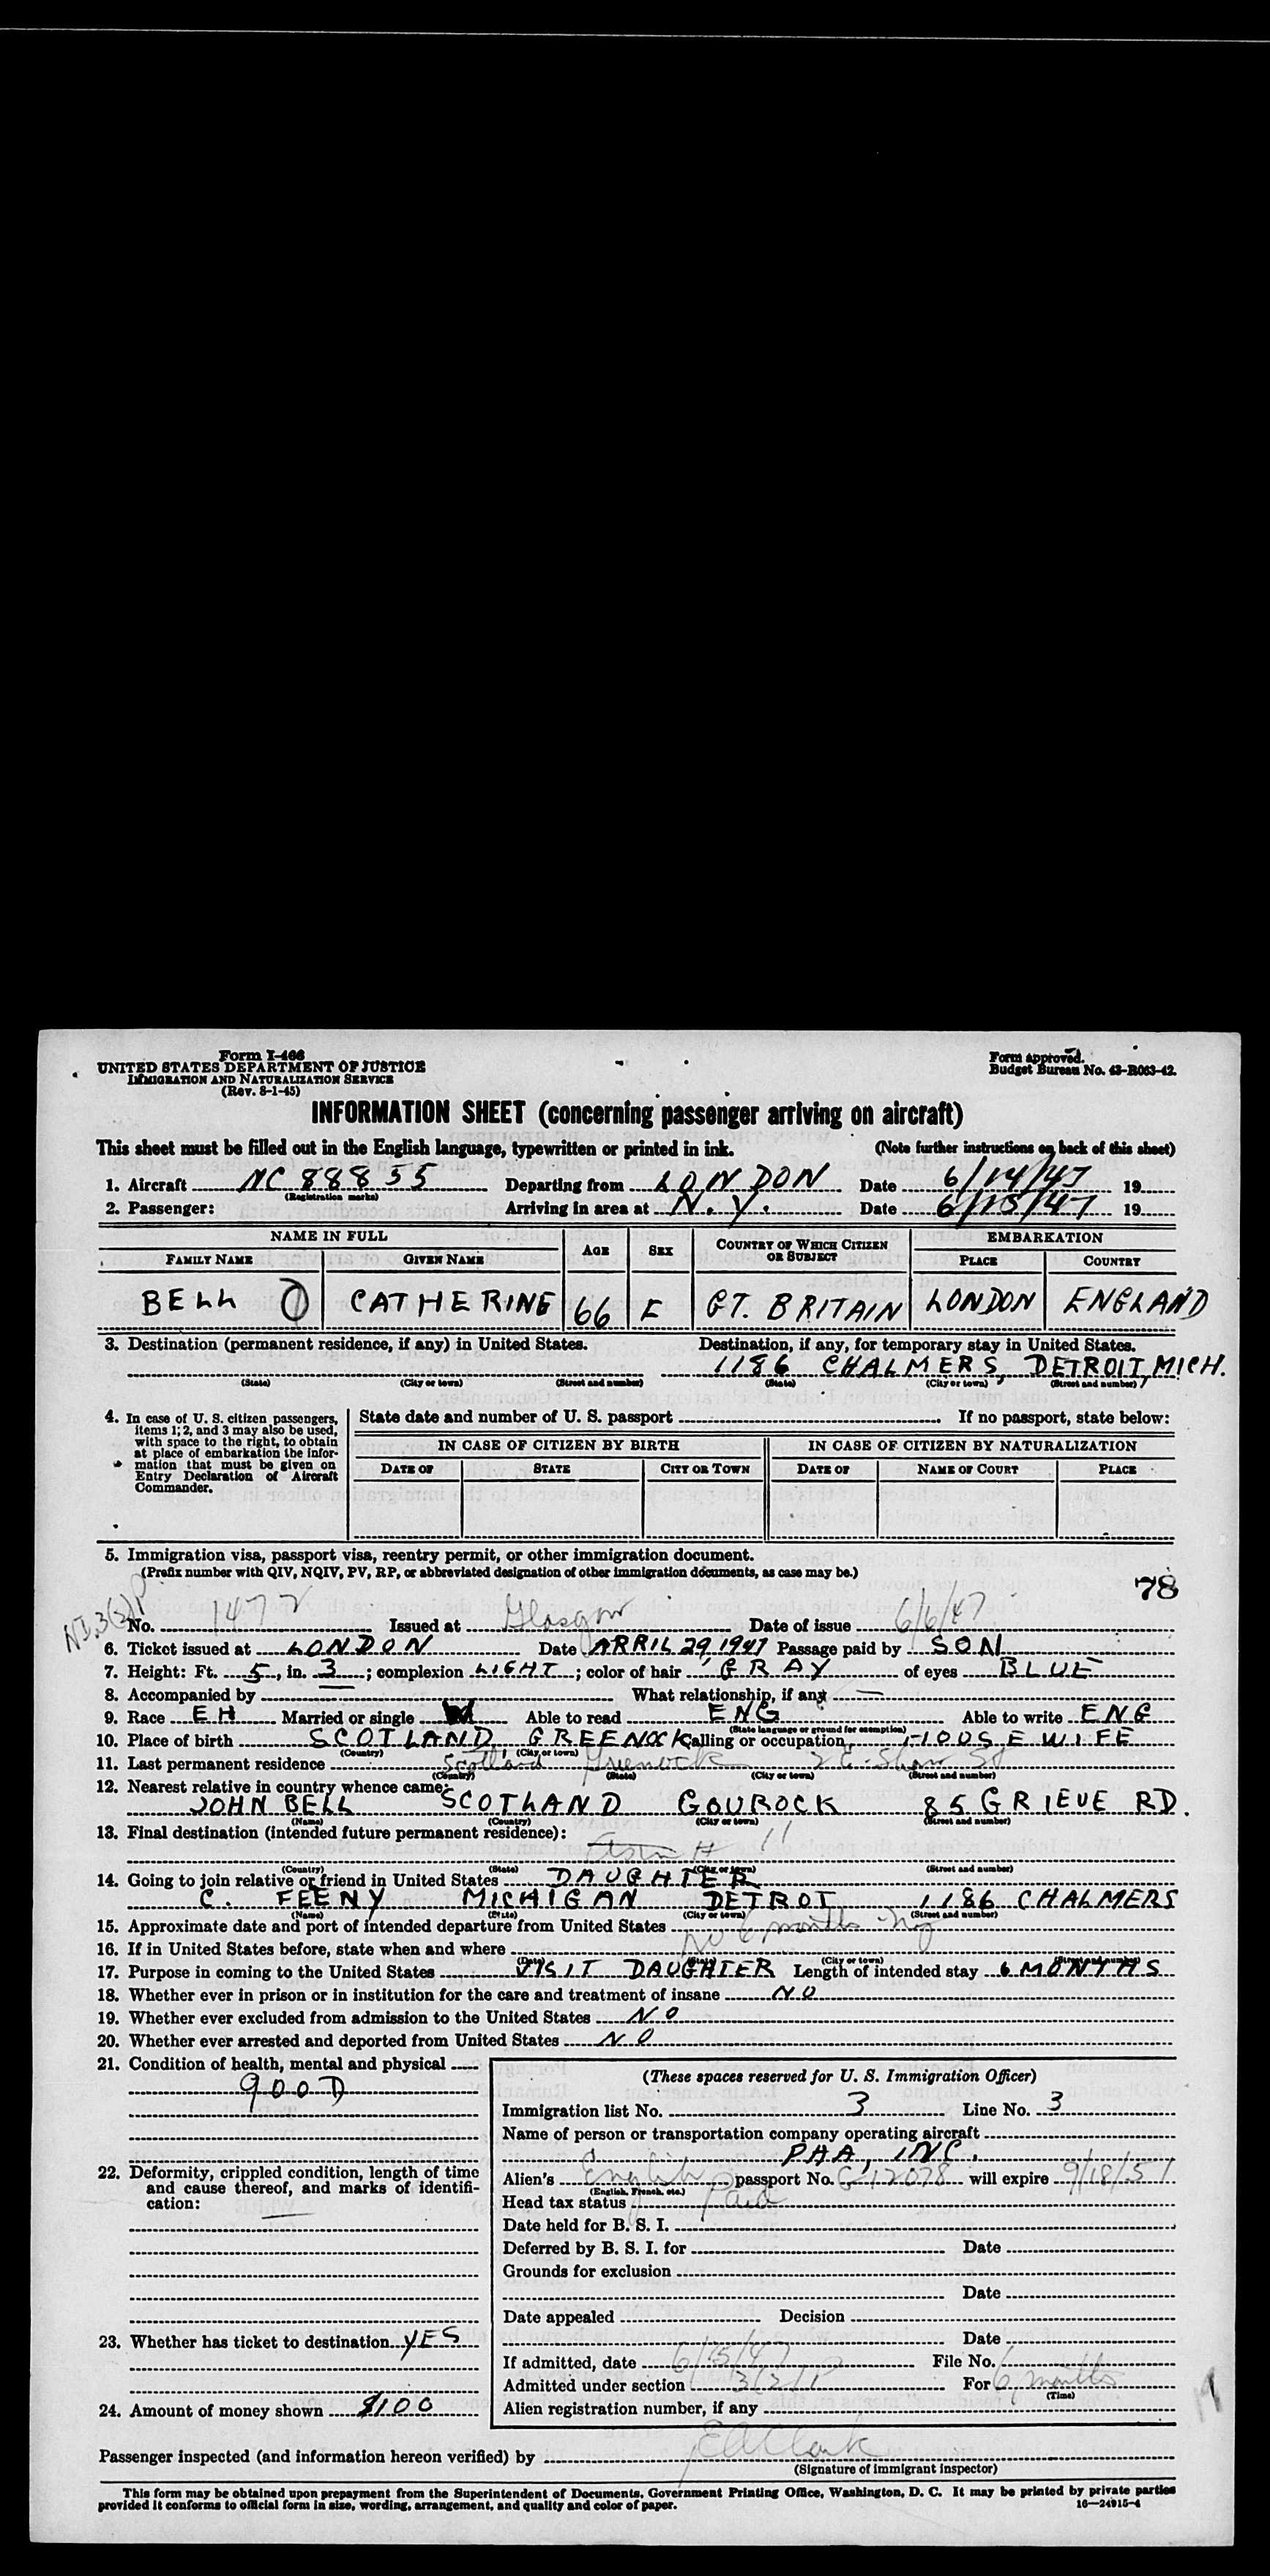 Form I-466
UNITED STATES DEPARTMENT OF JUSTICE
IMMIGRATION AND NATURALIZATION SERVICE
(Rev. 8-1-45)
Form approved.
Budget Bureau No. 43-R063-42.
INFORMATION SHEET (concerning passenger arriving on aircraft)
This sheet must be filled out in the English language, typewritten or printed in ink. (Note further instructions on back of this sheet)
1. Aircraft NC 88855 Departing from LONDON Date 6/14/47 19
(Registration marks)
2. Passenger: Arriving in area at N.Y. Date 6/15/47 19
NAME IN FULL AGE SEX COUNTRY OF WHICH CITIZEN OR SUBJECT EMBARKATION
FAMILY NAME GIVEN NAME PLACE COUNTRY
BELL CATHERINE 66 F GT. BRITAIN LONDON ENGLAND
3. Destination (permanent residence, if any) in United States. Destination, if any, for temporary stay in United States.
1186 CHALMERS, DETROIT, MICH.
(State) (City or town) (Street and number) (State) (City or town) (Street and number)
4. In case of U. S. citizen passengers, items 1, 2, and 3 may also be used, with space to the right, to obtain at place of embarkation the information that must be given on Entry Declaration of Aircraft Commander.
State date and number of U. S. passport If no passport, state below:
IN CASE OF CITIZEN BY BIRTH IN CASE OF CITIZEN BY NATURALIZATION
DATE OF STATE CITY OR TOWN DATE OF NAME OF COURT PLACE
5. Immigration visa, passport visa, reentry permit, or other immigration document.
(Prefix number with QIV, NQIV, PV, RP, or abbreviated designation of other immigration documents, as case may be.)
78
No. 1472 Issued at Glasgow Date of issue 6/6/47
6. Ticket issued at LONDON Date APRIL 29, 1947 Passage paid by SON
7. Height: Ft. 5, in. 3; complexion LIGHT; color of hair GRAY of eyes BLUE
8. Accompanied by What relationship, if any —
9. Race EH Married or single Able to read ENG Able to write ENG
(State language or ground for exemption)
10. Place of birth SCOTLAND GREENOCK Calling or occupation HOUSEWIFE
(Country) (City or town)
11. Last permanent residence Scotland Greenock 2 E. Shaw St
(Country) (State) (City or town) (Street and number)
12. Nearest relative in country whence came:
JOHN BELL SCOTLAND GOUROCK 85 GRIEVE RD.
(Name) (Country) (City or town) (Street and number)
13. Final destination (intended future permanent residence):
(Country) (State) (City or town) (Street and number)
14. Going to join relative or friend in United States DAUGHTER
C. FEENY MICHIGAN DETROT 1186 CHALMERS
(Name) (State) (City or town) (Street and number)
15. Approximate date and port of intended departure from United States 6 months NY
16. If in United States before, state when and where No
(Date) (State) (City or town) (Street and number)
17. Purpose in coming to the United States VISIT DAUGHTER Length of intended stay 6 MONTHS
18. Whether ever in prison or in institution for the care and treatment of insane NO
19. Whether ever excluded from admission to the United States NO
20. Whether ever arrested and deported from United States NO
21. Condition of health, mental and physical
GOOD
22. Deformity, crippled condition, length of time and cause thereof, and marks of identification: —
23. Whether has ticket to destination YES
24. Amount of money shown $100
(These spaces reserved for U. S. Immigration Officer)
Immigration list No. 3 Line No. 3
Name of person or transportation company operating aircraft
PAA, INC.
Alien's English passport No. C-12078 will expire 9/18/51
(English, French, etc.)
Head tax status Paid
Date held for B. S. I.
Deferred by B. S. I. for Date
Grounds for exclusion
Date
Date appealed Decision
Date
If admitted, date 6/15/47 File No.
Admitted under section 3(2) P For 6 months
(Time)
Alien registration number, if any
Passenger inspected (and information hereon verified) by EA Clark
(Signature of immigrant inspector)
This form may be obtained upon prepayment from the Superintendent of Documents, Government Printing Office, Washington, D. C. It may be printed by private parties
provided it conforms to official form in size, wording, arrangement, and quality and color of paper. 16—24915-4